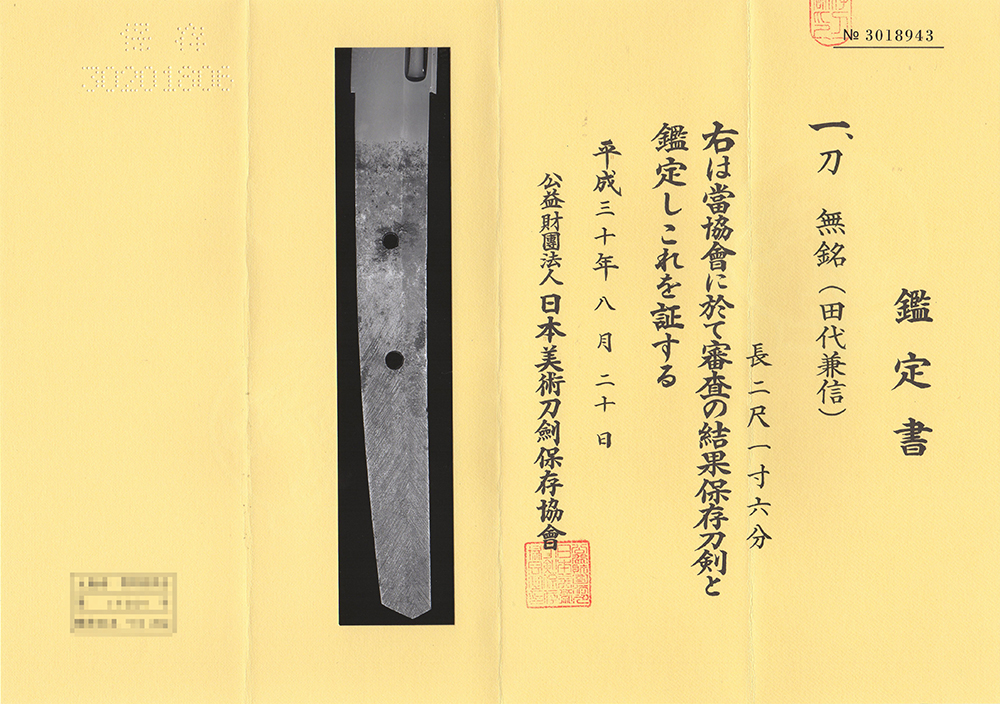 № 3018943
鑑定書
一、刀 無銘(田代兼信)
長二尺一寸六分
右は當協會に於て審査の結果保存刀剣と
鑑定しこれを証する
平成三十年八月二十日
公益財團法人 日本美術刀劍保存協會
保存
30201806